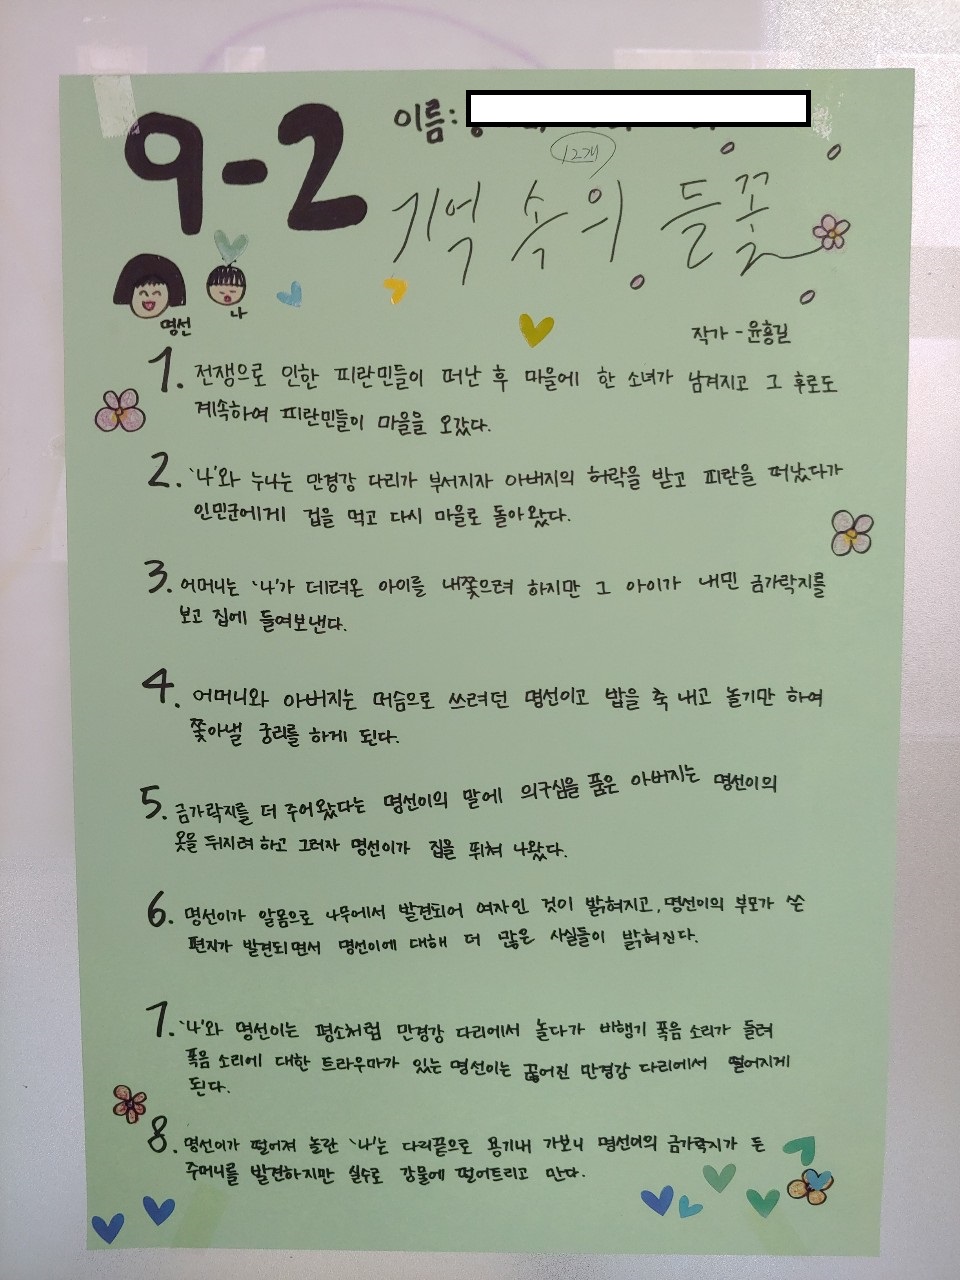 9-2
이름:
12개
기억 속의 들꽃
명선
나
작가 - 윤흥길
1. 전쟁으로 인한 피란민들이 떠난 후 마을에 한 소녀가 남겨지고 그 후로도
계속하여 피란민들이 마을을 오갔다.
2. '나'와 누나는 만경강 다리가 부서지자 아버지의 허락을 받고 피란을 떠났다가
인민군에게 겁을 먹고 다시 마을로 돌아왔다.
3. 어머니는 '나'가 데려온 아이를 내쫓으려 하지만 그 아이가 내민 금가락지를
보고 집에 들여보낸다.
4. 어머니와 아버지는 머슴으로 쓰려던 명선이고 밥을 축 내고 놀기만 하여
쫓아낼 궁리를 하게 된다.
5. 금가락지를 더 주어왔다는 명선이의 말에 의구심을 품은 아버지는 명선이의
옷을 뒤지려 하고 그러자 명선이가 집을 뛰쳐 나왔다.
6. 명선이가 알몸으로 나무에서 발견되어 여자인 것이 밝혀지고, 명선이의 부모가 쓴
편지가 발견되면서 명선이에 대해 더 많은 사실들이 밝혀진다.
7. '나'와 명선이는 평소처럼 만경강 다리에서 놀다가 비행기 폭음 소리가 들려
폭음 소리에 대한 트라우마가 있는 명선이는 끊어진 만경강 다리에서 떨어지게
된다.
8. 명선이가 떨어져 놀란 '나'는 다리끝으로 용기내 가보니 명선이의 금가락지가 든
주머니를 발견하지만 실수로 강물에 떨어트리고 만다.